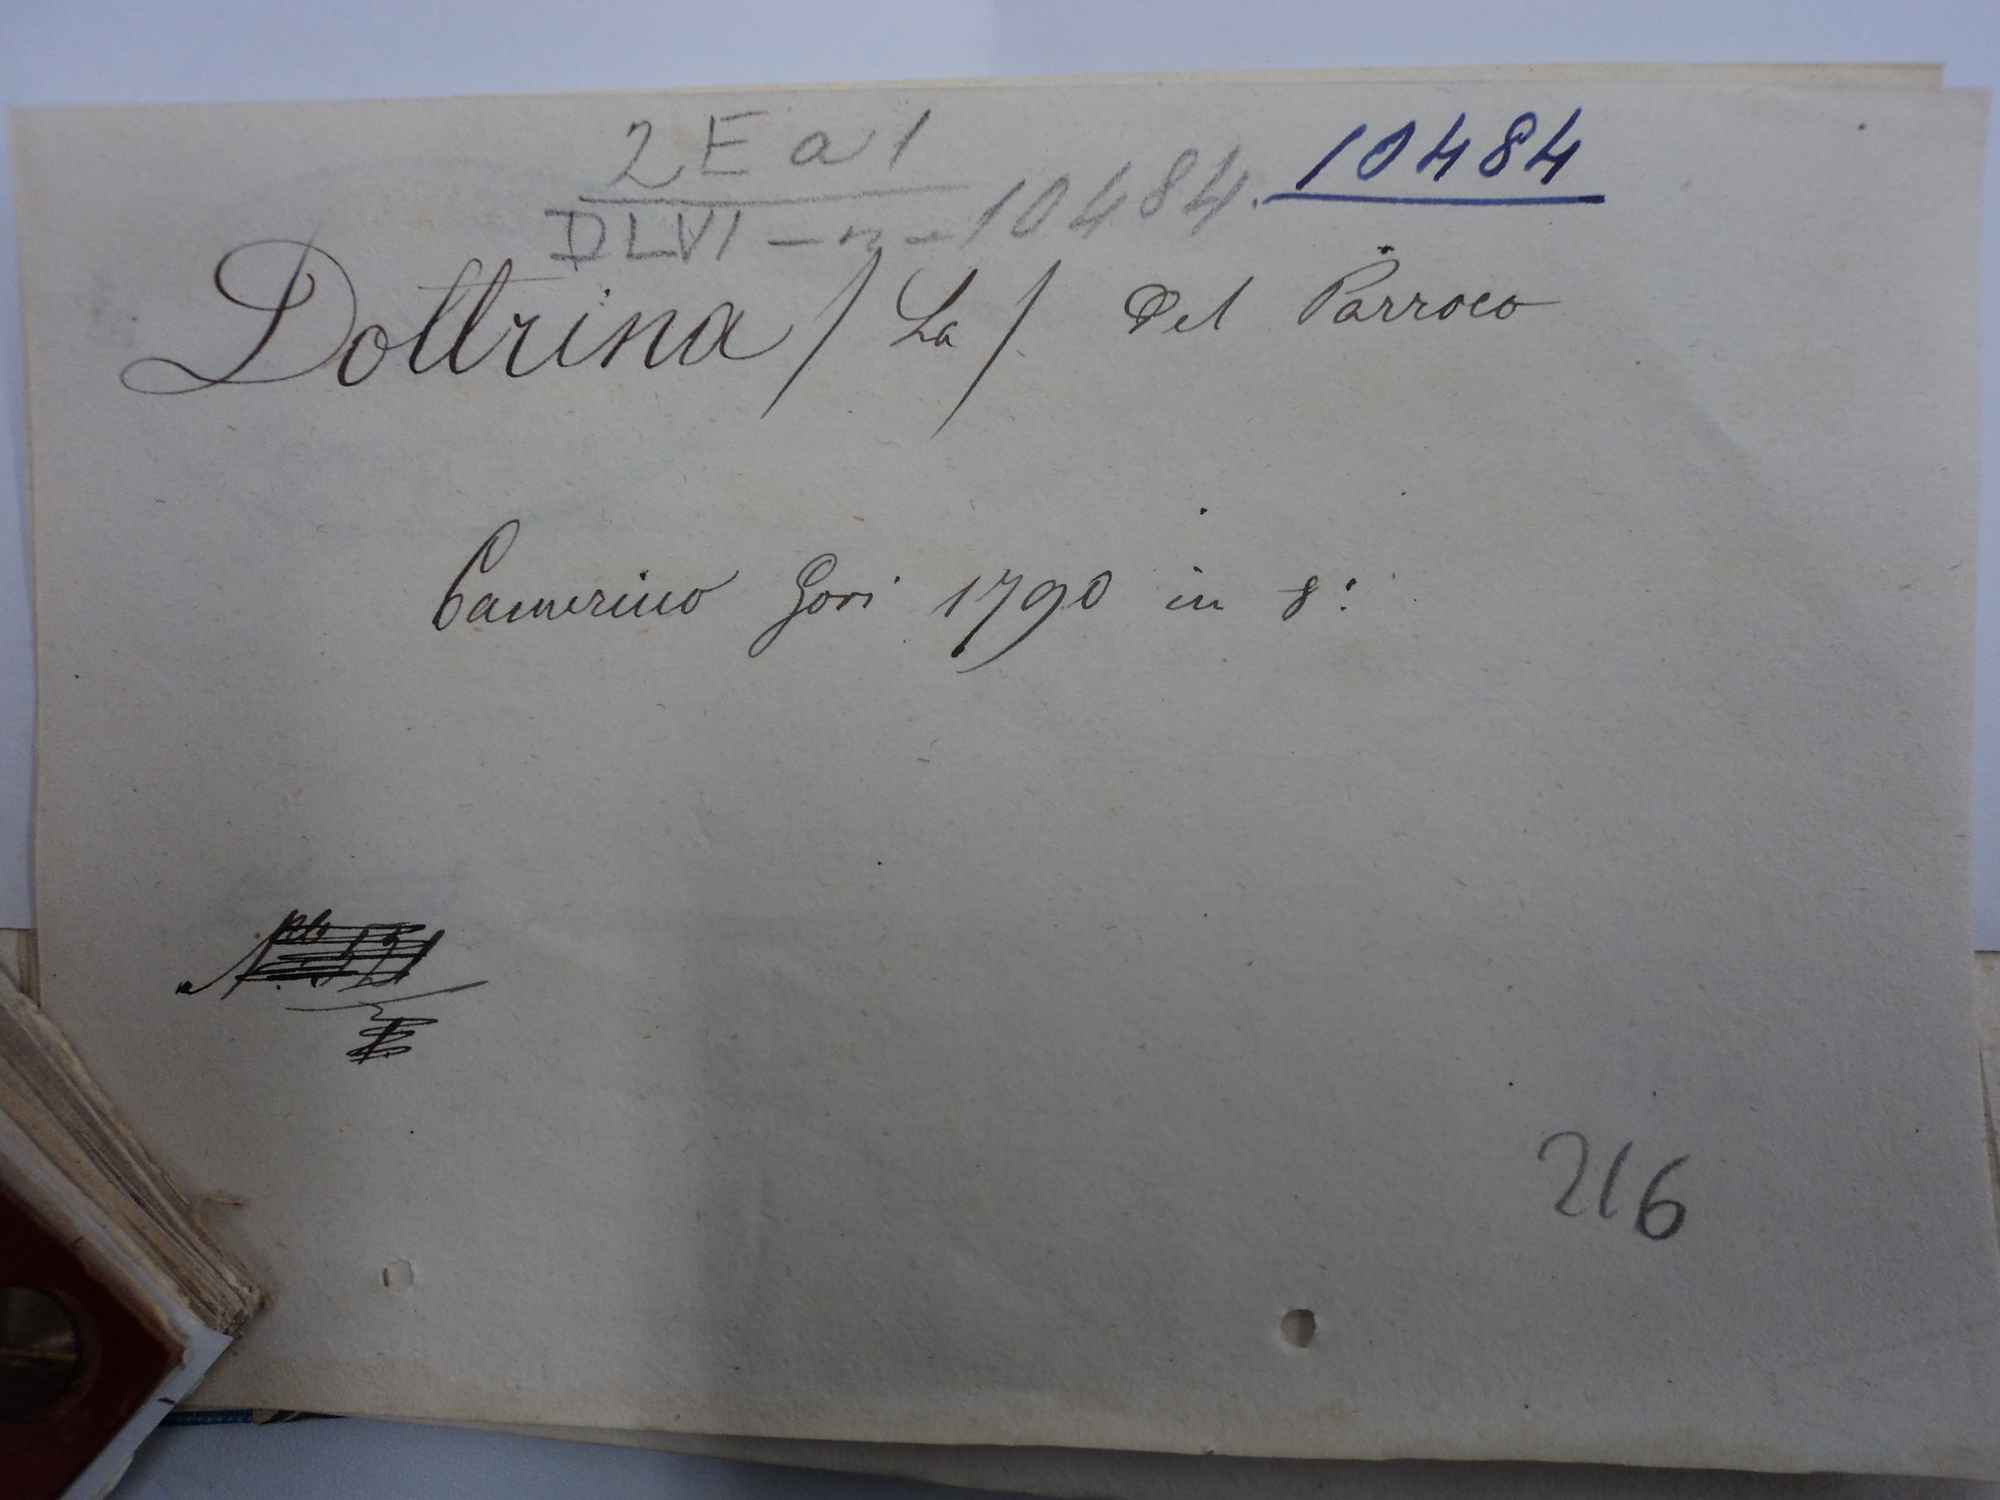 2 E a 1
DLVI - n - 10484. 10484
Dottrina / La / Del Parroco
Camerino Gori 1790 in 8:
216